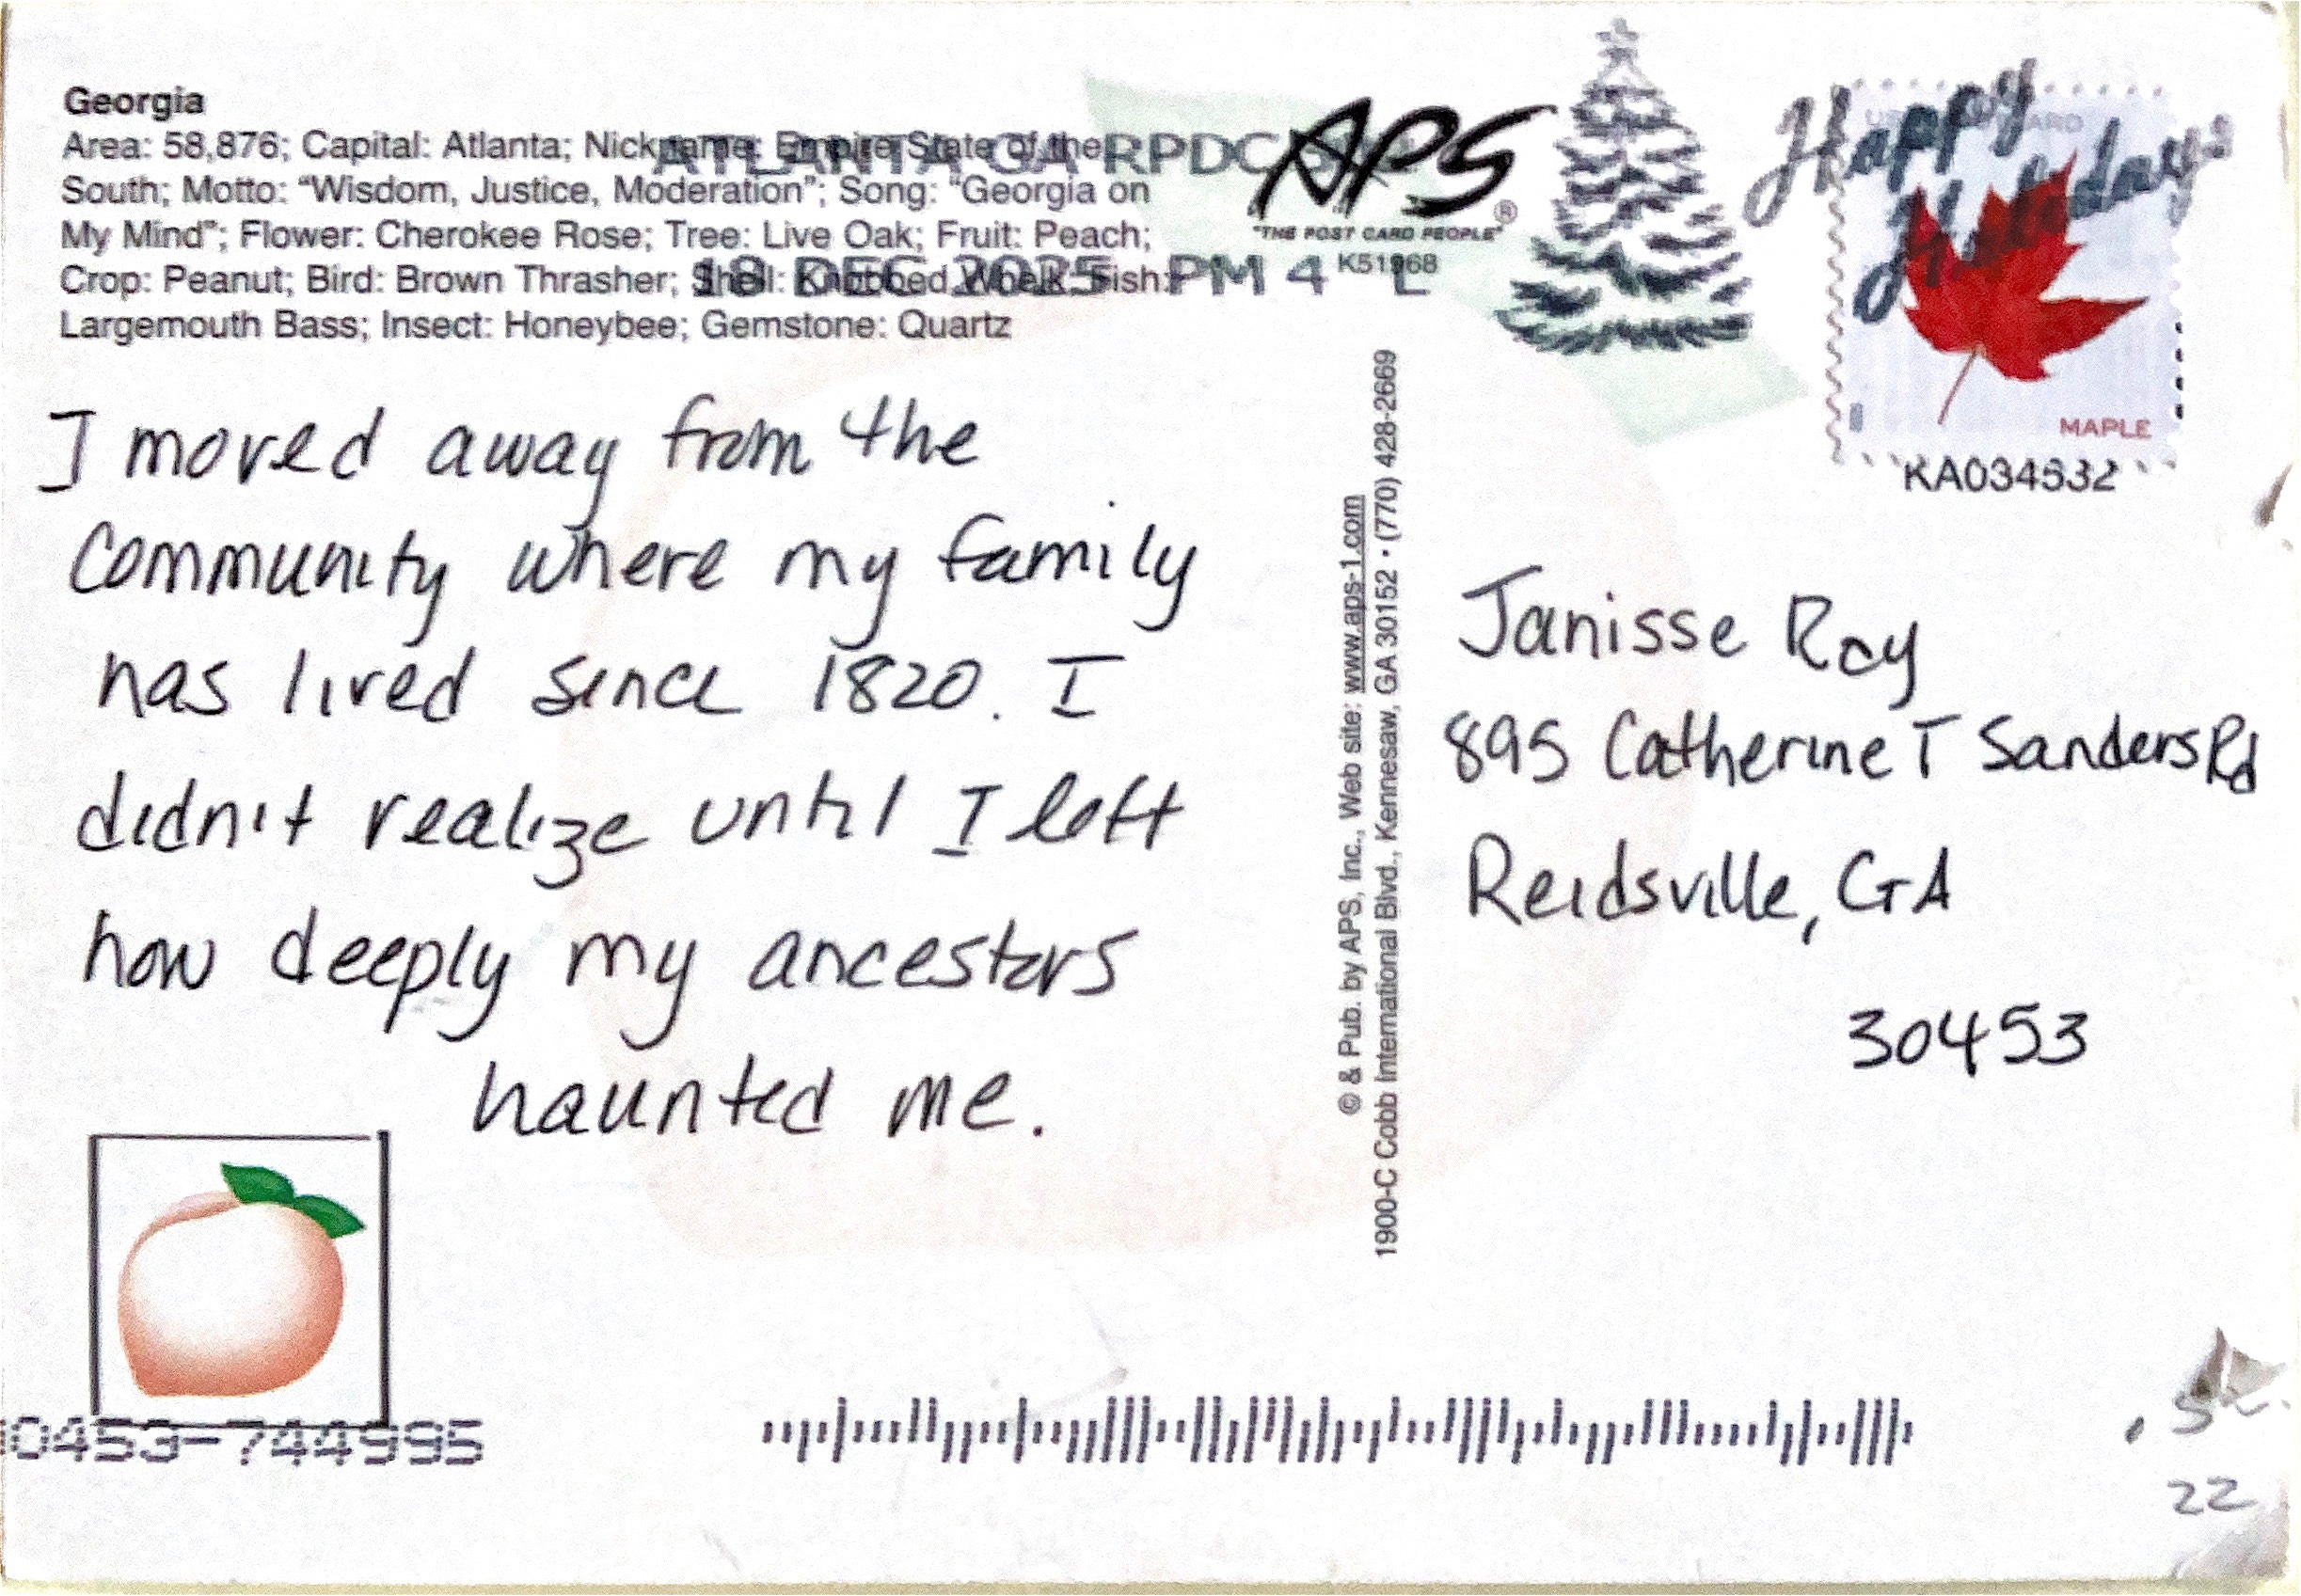 Georgia
Area: 58,876; Capital: Atlanta; Nickname: Empire State of the
South; Motto: “Wisdom, Justice, Moderation”; Song: “Georgia on
My Mind”; Flower: Cherokee Rose; Tree: Live Oak; Fruit: Peach;
Crop: Peanut; Bird: Brown Thrasher; Shell: Knobbed Whelk; Fish:
Largemouth Bass; Insect: Honeybee; Gemstone: Quartz
ATLANTA GA RPDC
18 DEC 2025 PM 4 L
APS
®
"THE POST CARD PEOPLE"
K51968
Happy
Holidays
MAPLE
KA034632
I moved away from the
community where my family
has lived since 1820. I
didn't realize until I left
how deeply my ancestors
haunted me.
© & Pub. by APS, Inc., Web site: www.aps-1.com
1900-C Cobb International Blvd., Kennesaw, GA 30152 • (770) 428-2669
Janisse Ray
895 Catherine T Sanders Rd
Reidsville, GA
30453
0453-744995
22